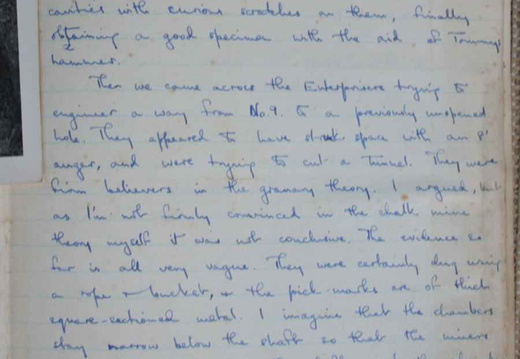 cavities with curious scratches on them, finally
obtaining a good specimen with the aid of Tommy's
hammer.
Then we came across the Enterprisers trying to
engineer a way from No. 9. to a previously unopened
hole. They appeared to have struck space with an 8'
auger, and were trying to cut a tunnel. They were
firm believers in the granary theory. I argued, but
as I'm not firmly convinced in the chalk mine
theory myself it was not conclusive. The evidence so
far is all very vague. They were certainly dug using
a rope & bucket, & the pick marks are of thick
square-sectioned metal. I imagine that the chambers
stay narrow below the shaft so that the miners